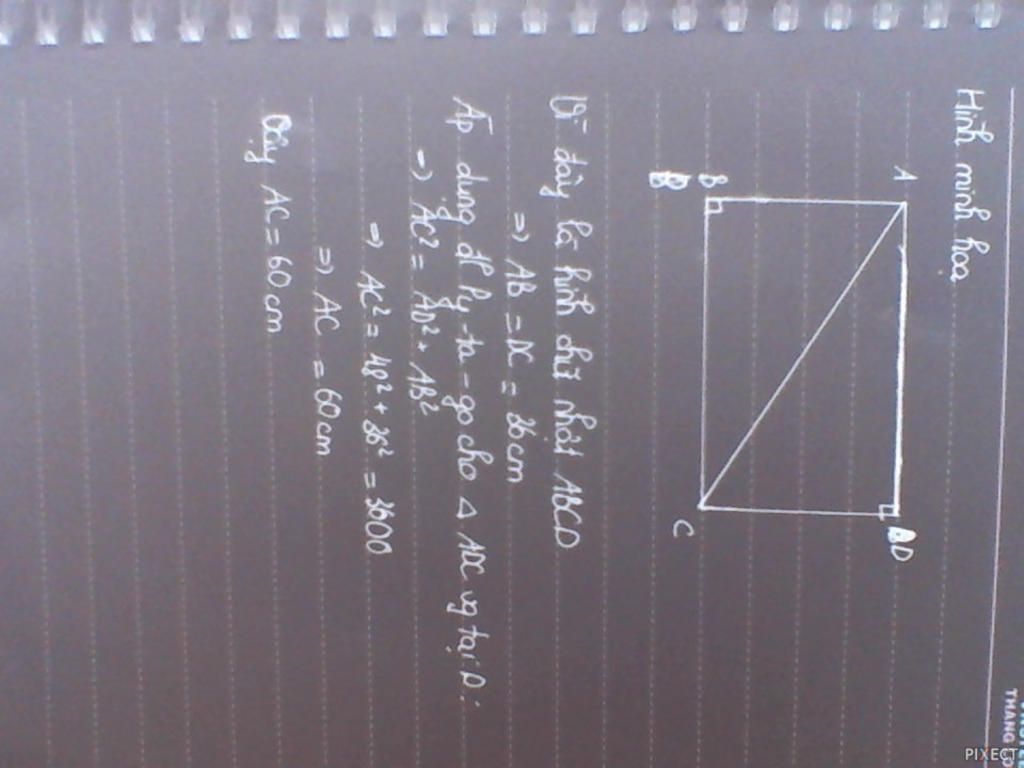 Hình minh hoạ
A
D
B
C
Vì đây là hình chữ nhật ABCD
=> AB = DC = 36cm
Áp dụng đl Py-ta-go cho △ ADC vg tại D:
=> AC² = AD² + AB²
=> AC² = 48² + 36² = 3600
=> AC = 60cm
Vậy AC = 60 cm
THANG
PIXECT